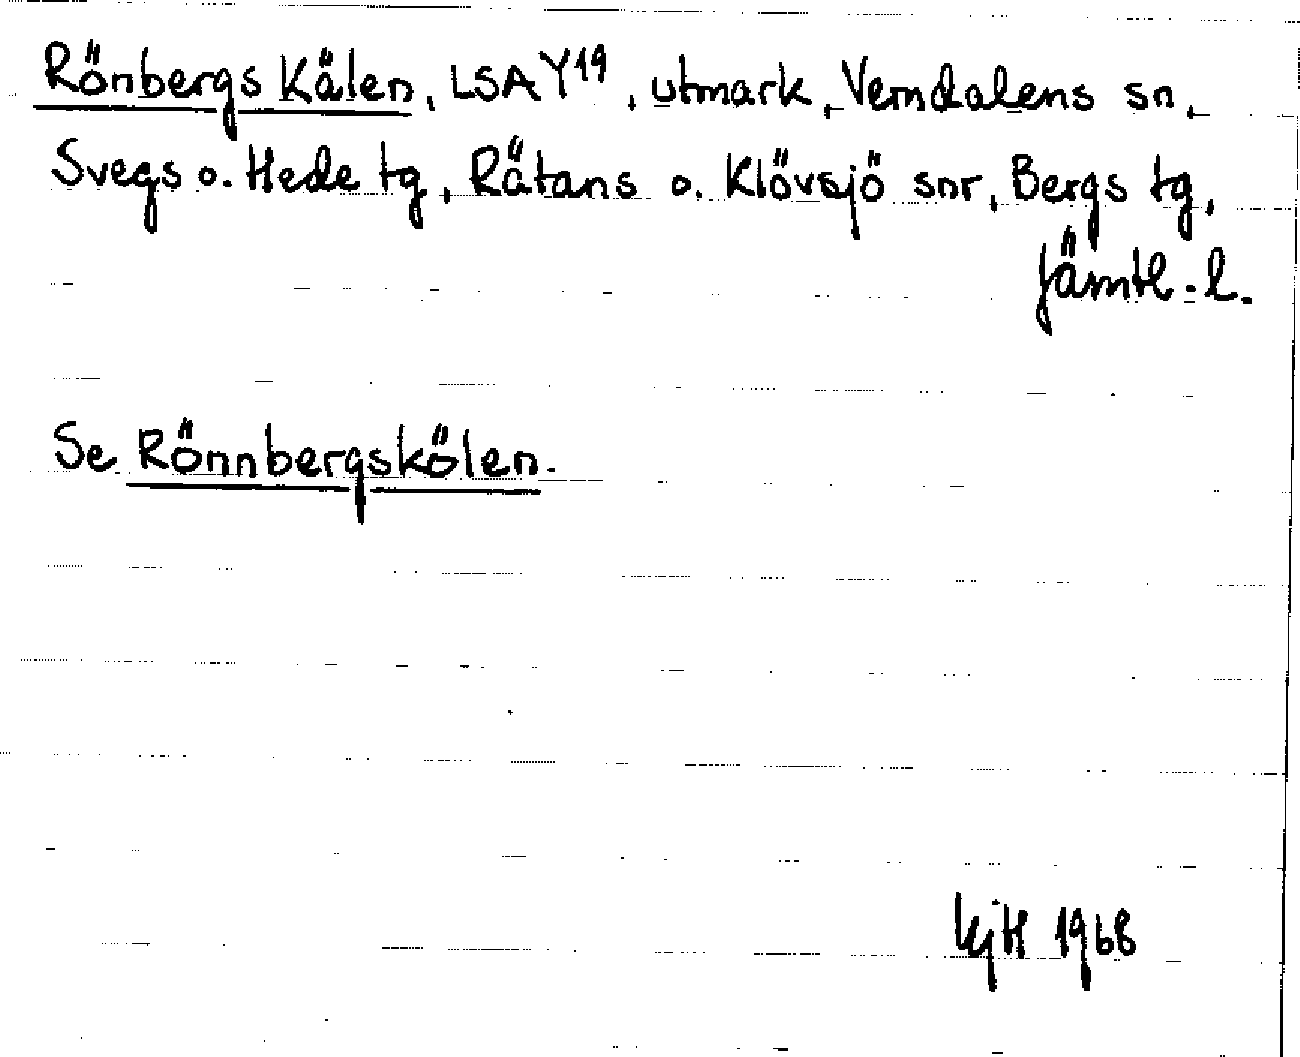 Rönbergs Kälen, LSA Y19, utmark, Vemdalens sn,
Svegs o. Hede tg, Rätans o. Klövsjö snr, Bergs tg,
Jämtl. l.
Se Rönnbergskölen.
KjH 1968